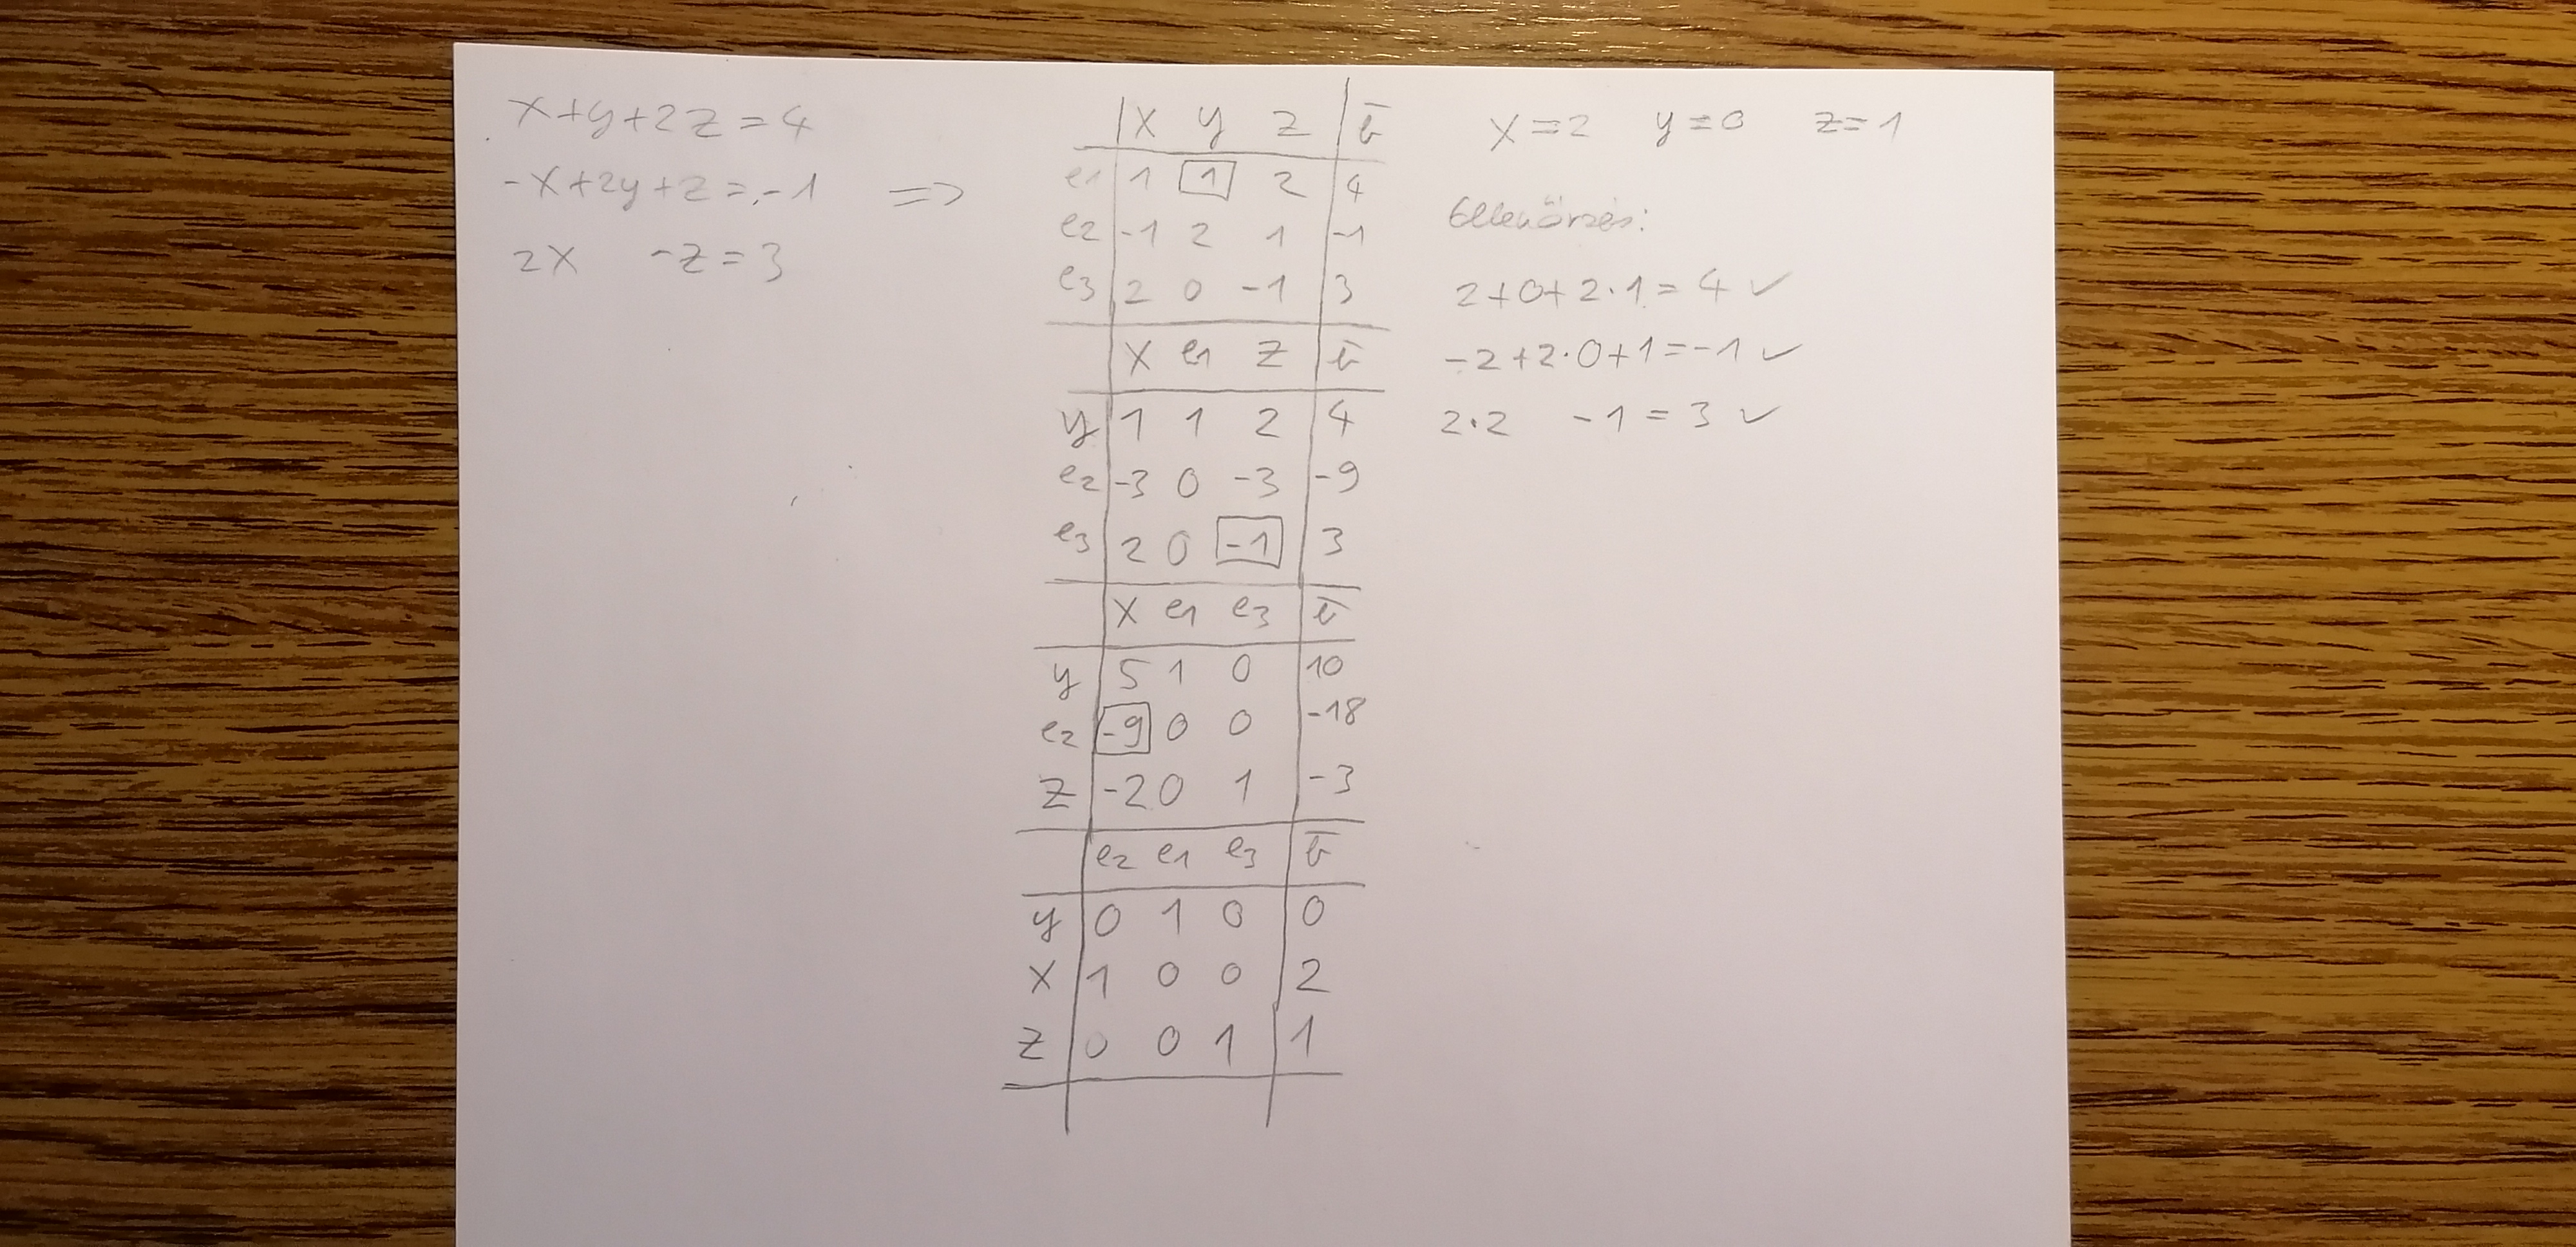 x+y+2z=4
-x+2y+z=-1 =>
2x -z=3
x y z b̄
e1 1 1 2 4
e2 -1 2 1 -1
e3 2 0 -1 3
x e1 z b̄
y 1 1 2 4
e2 -3 0 -3 -9
e3 2 0 -1 3
x e1 e3 b̄
y 5 1 0 10
e2 -9 0 0 -18
z -2 0 1 -3
e2 e1 e3 b̄
y 0 1 0 0
x 1 0 0 2
z 0 0 1 1
x=2 y=0 z=1
Ellenőrzés:
2+0+2·1=4 ✓
-2+2·0+1=-1 ✓
2·2 -1=3 ✓